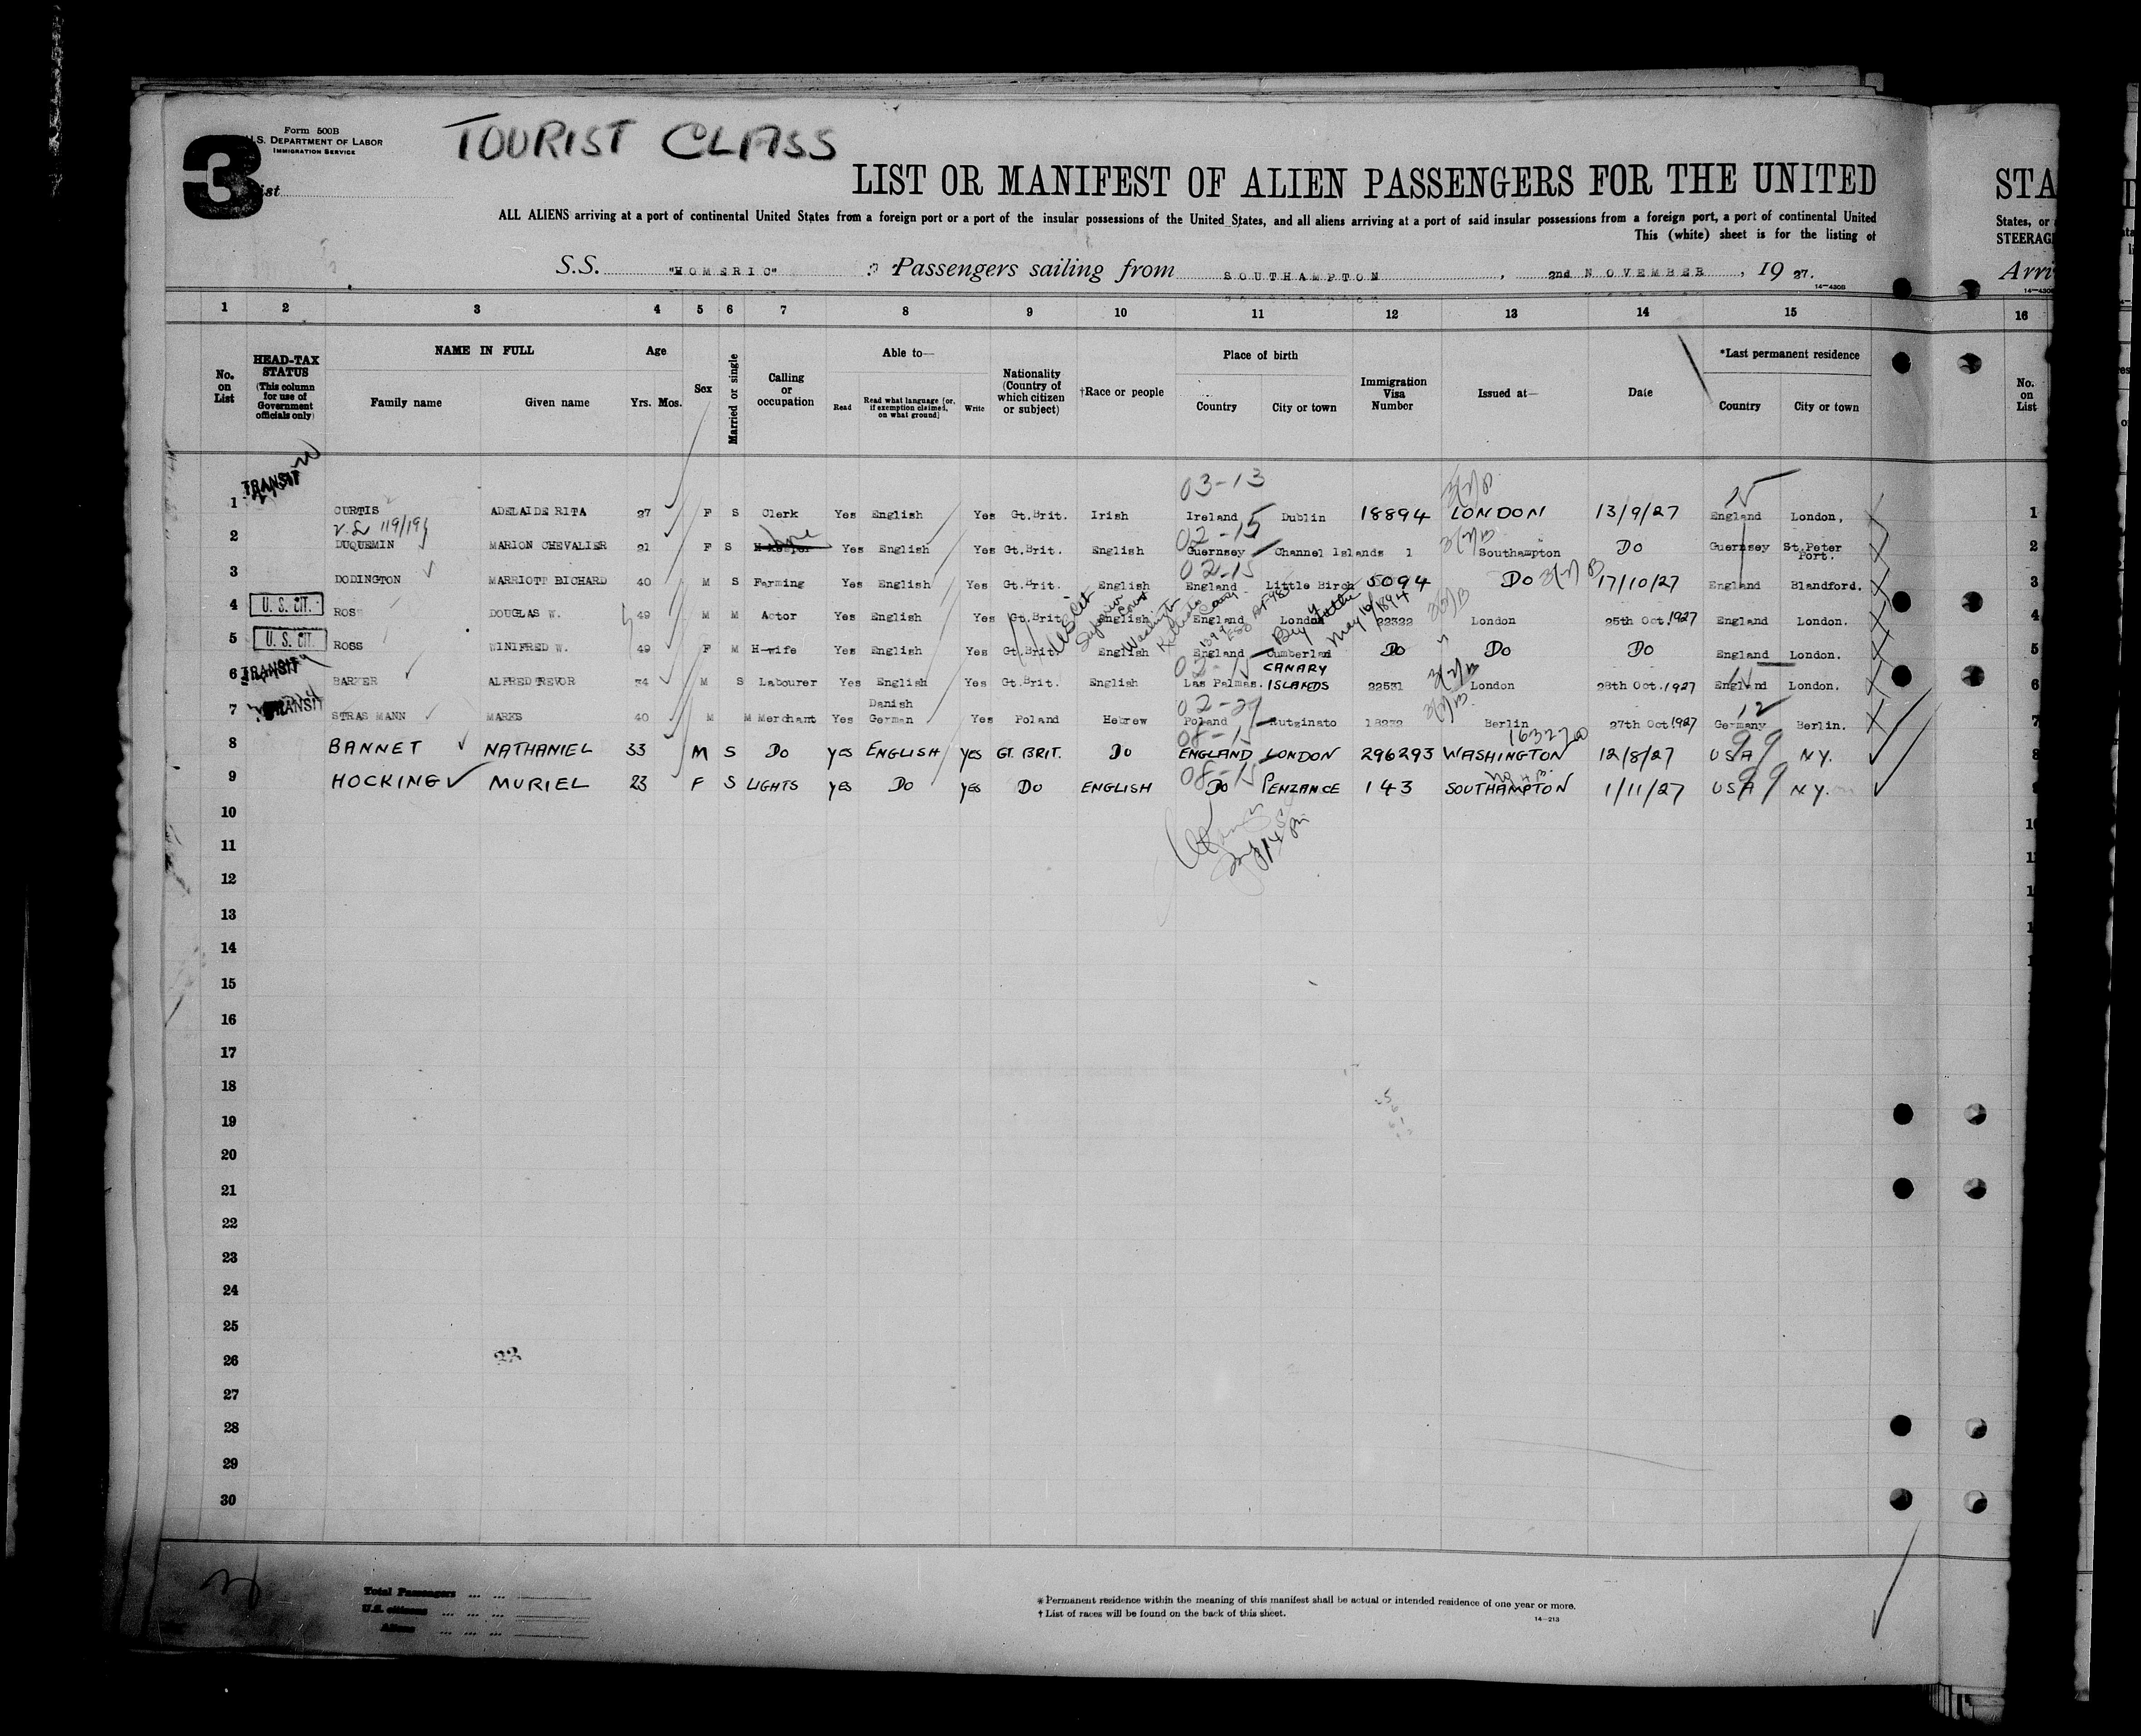 Form 500B
U.S. DEPARTMENT OF LABOR
IMMIGRATION SERVICE
TOURIST CLASS
3
List
LIST OR MANIFEST OF ALIEN PASSENGERS FOR THE UNITED
STA
ALL ALIENS arriving at a port of continental United States from a foreign port or a port of the insular possessions of the United States, and all aliens arriving at a port of said insular possessions from a foreign port, a port of continental United
States, or
This (white) sheet is for the listing of
STEERAG
S.S. "HOMERIC" Passengers sailing from SOUTHAMPTON, 2nd NOVEMBER, 19 27.
Arri
14—430B
1 2 3 4 5 6 7 8 9 10 11 12 13 14 15 16
No. on List
HEAD-TAX STATUS (This column for use of Government officials only)
NAME IN FULL
Family name Given name
Age
Yrs. Mos.
Sex
Married or single
Calling or occupation
Able to—
Read Read what language (or, if exemption claimed, on what ground) Write
Nationality (Country of which citizen or subject)
†Race or people
Place of birth
Country City or town
Immigration Visa Number
Issued at—
Date
*Last permanent residence
Country City or town
No. on List
03-13
1 TRANSIT CURTIS ADELAIDE RITA 27 F S Clerk Yes English Yes Gt.Brit. Irish Ireland Dublin 18894 LONDON 13/9/27 England London, 1
02-15
2 DUQUEMIN MARION CHEVALIER 21 F S Yes English Yes Gt.Brit. English Guernsey Channel Islands 1 Southampton DO Guernsey St.Peter Port. 2
02-15
3 DODINGTON MARRIOTT RICHARD 40 M S Farming Yes English Yes Gt.Brit. English England Little Birch 5094 DO 17/10/27 England Blandford. 3
4 U. S. CIT. ROSS DOUGLAS W. 49 M M Actor Yes English Yes Gt.Brit. English England London 22322 London 25th Oct. 1927 England London. 4
5 U. S. CIT. ROSS WINIFRED W. 49 F M H-wife Yes English Yes Gt.Brit. English England Cumberland DO DO DO England London. 5
6 TRANSIT BARKER ALFRED TREVOR 34 M S Labourer Yes English Yes Gt.Brit. English Las Palmas. CANARY ISLANDS 22531 London 28th Oct. 1927 England London. 6
02-29
7 TRANSIT STRAS MANN MARKS 40 M M Merchant Yes Danish German Yes Poland Hebrew Poland Kutzinato 18232 Berlin 27th Oct 1927 Germany Berlin. 7
08-15
8 BANNET NATHANIEL 33 M S DO YES ENGLISH YES GT. BRIT. DO ENGLAND LONDON 296293 WASHINGTON 12/8/27 USA NY. 8
08-15
9 HOCKING MURIEL 23 F S LIGHTS YES DO YES DO ENGLISH DO PENZANCE 143 SOUTHAMPTON 1/11/27 USA NY.
10
11
12
13
14
15
16
17
18
19
20
21
22
23
24
25
26
22
27
28
29
30
Total Passengers ... ...
U.S. citizens ... ... ...
Aliens ... ... ...
* Permanent residence within the meaning of this manifest shall be actual or intended residence of one year or more.
† List of races will be found on the back of this sheet.
14—213